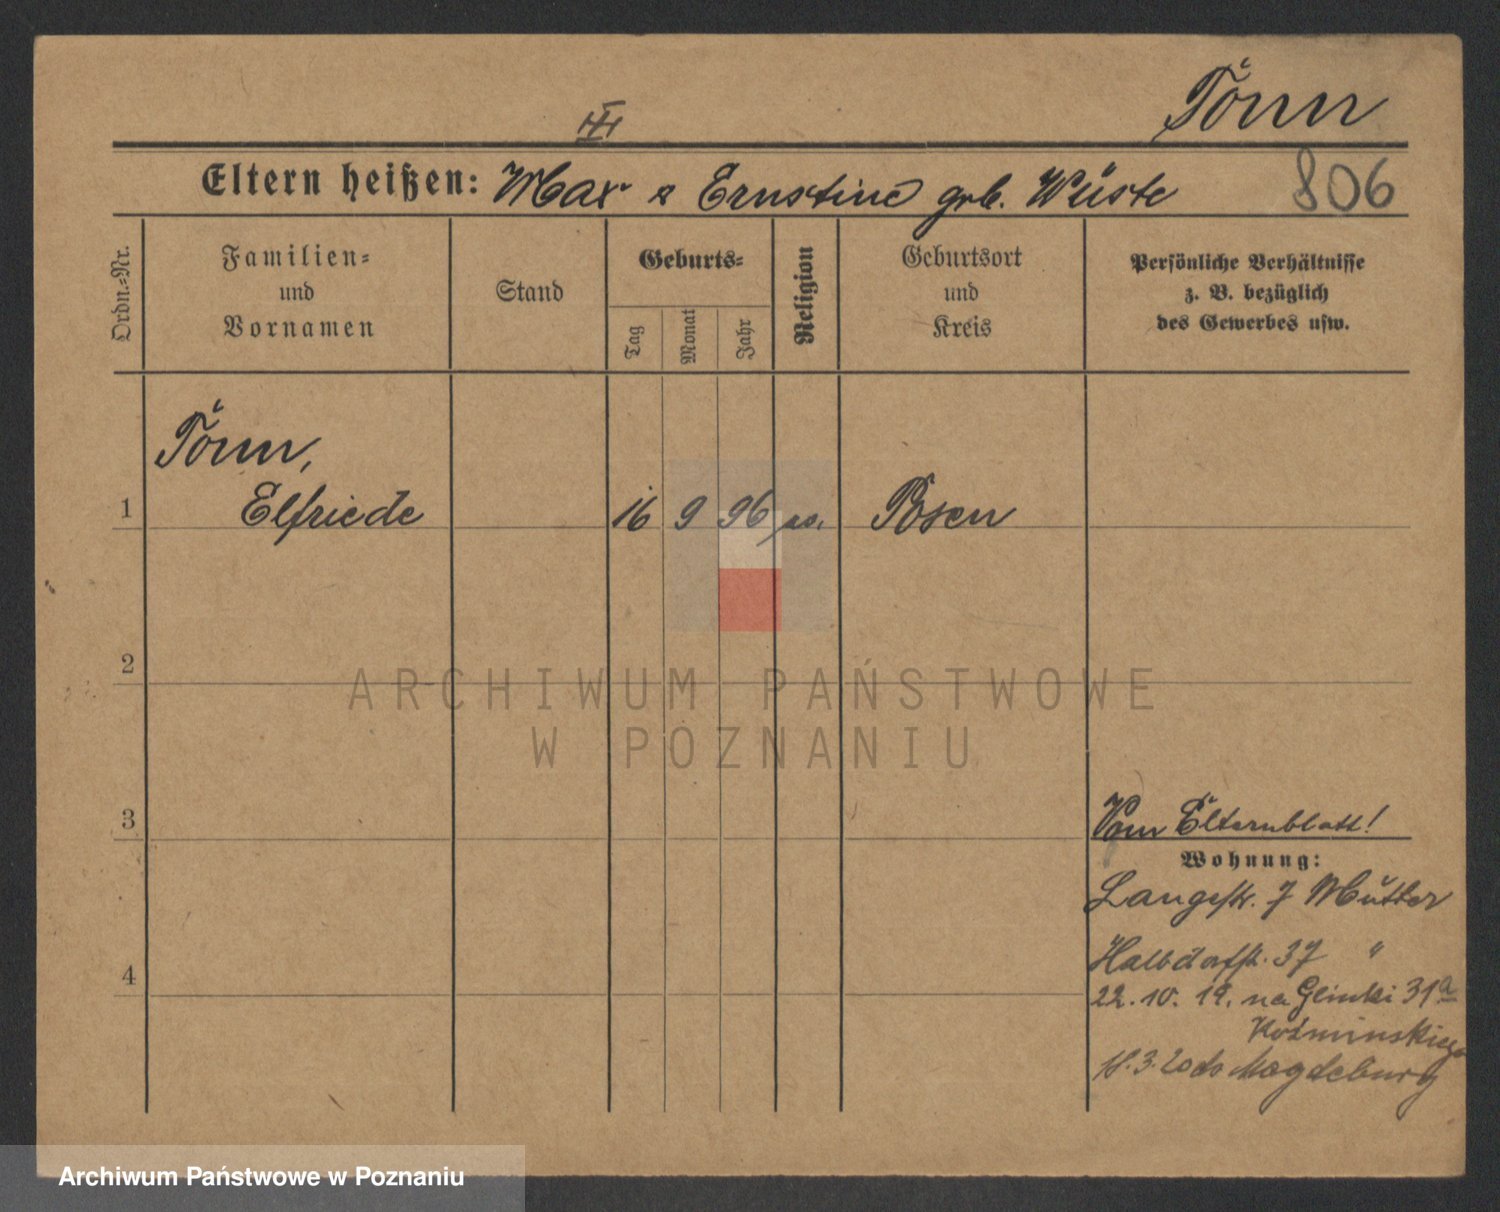 Tönn
III
Eltern heißen: Max & Ernstine geb. Wüste
806
Ordn.-Nr.
Familien-
und
Vornamen
Stand
Geburts-
Tag
Monat
Jahr
Religion
Geburtsort
und
Kreis
Persönliche Verhältnisse
z. B. bezüglich
des Gewerbes usw.
Tönn,
1 Elfriede 16 9 96 Posen
2
ARCHIWUM PAŃSTWOWE
W POZNANIU
3
Vom Elternblatt!
Wohnung:
Langestr. 7 Mutter
Halbdorfstr. 37 "
4
22.10.19. na Glinki 31a
Koźminskiego
18.3.20 do Magdeburg
Archiwum Państwowe w Poznaniu